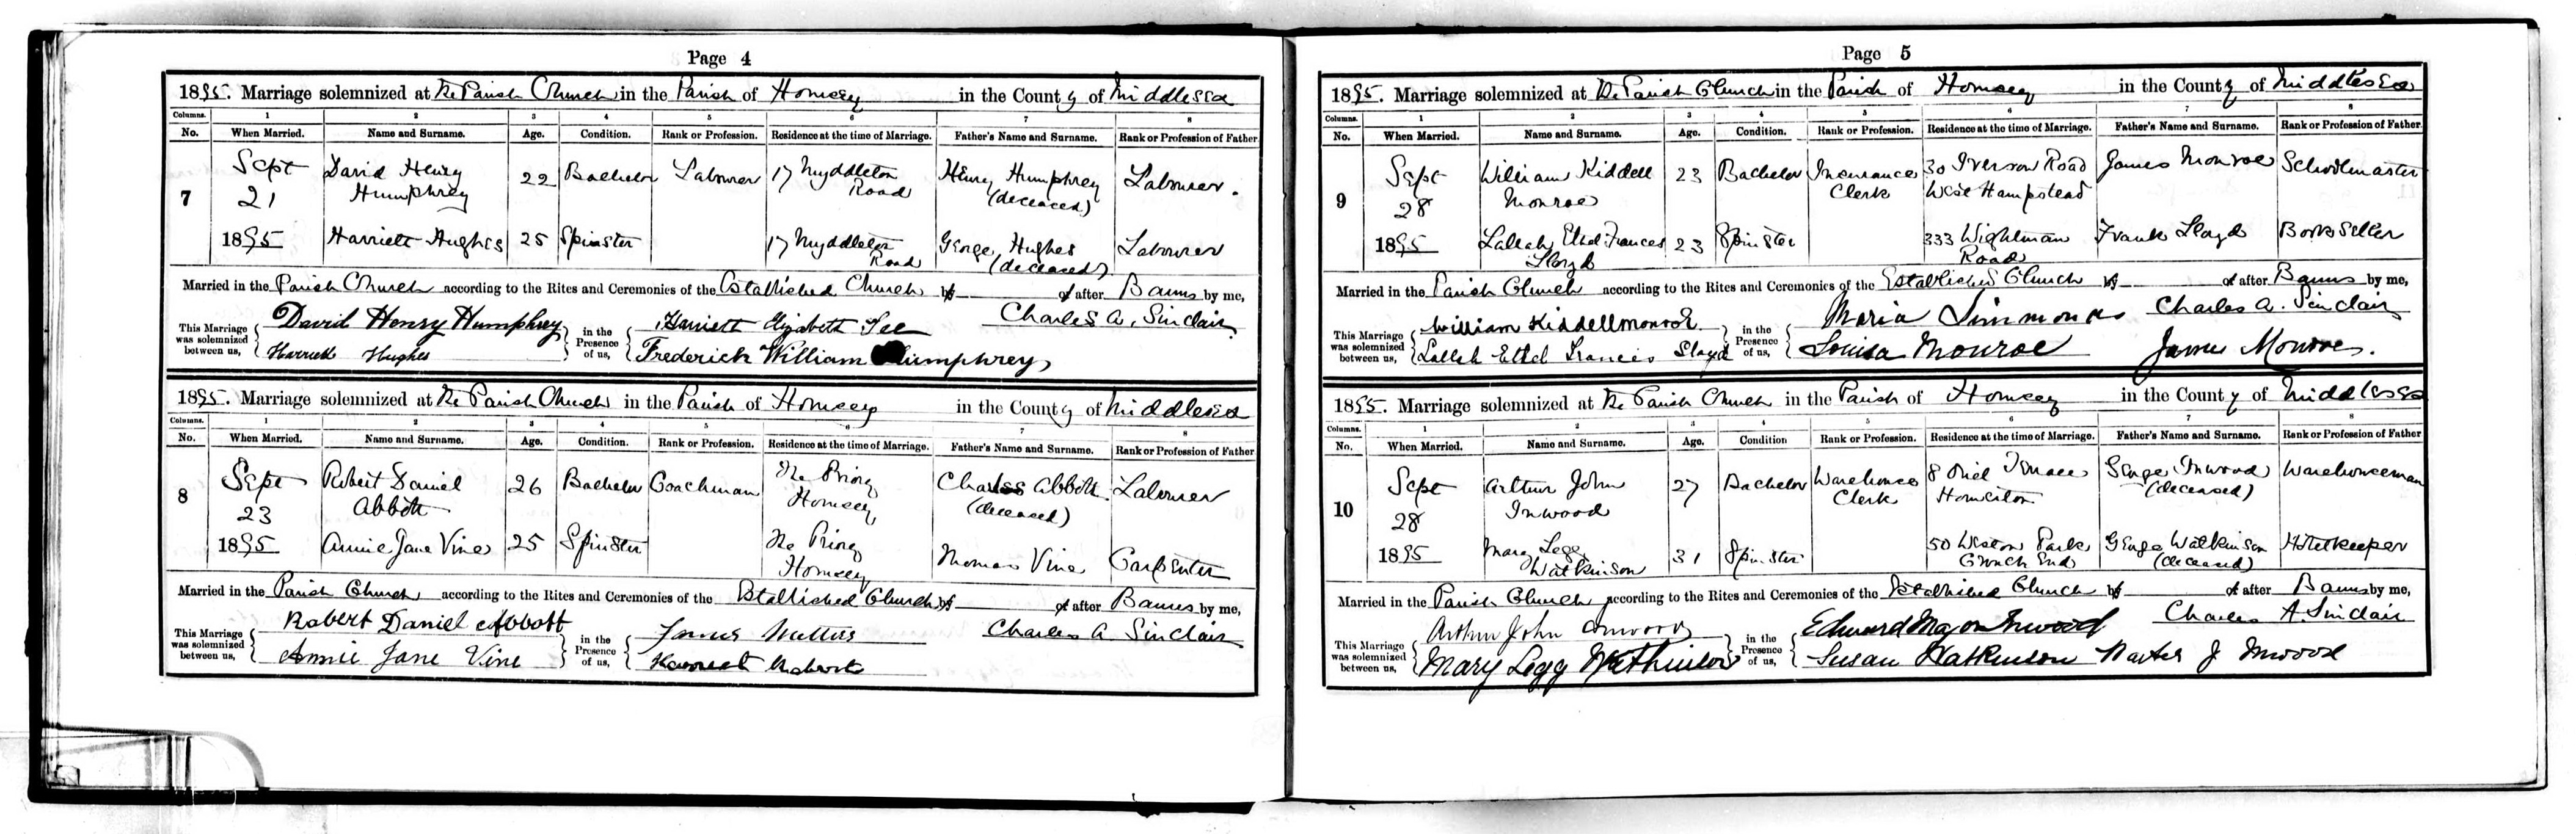 Page 4
1895. Marriage solemnized at The Parish Church in the Parish of Hornsey in the County of Middlesex
Columns. 1 2 3 4 5 6 7 8
No. When Married. Name and Surname. Age. Condition. Rank or Profession. Residence at the time of Marriage. Father's Name and Surname. Rank or Profession of Father
7 Sept 21 1895
David Henry Humphrey 22 Bachelor Labourer 17 Myddleton Road Henry Humphrey (deceased) Labourer.
Harriett Hughes 25 Spinster 17 Myddleton Road George Hughes (deceased) Labourer
Married in the Parish Church according to the Rites and Ceremonies of the Established Church by or after Banns by me,
This Marriage was solemnized between us, David Henry Humphrey in the Presence of us, Harriett Elizabeth Lee Charles A. Sinclair
Harriett Hughes Frederick William Humphrey
1895. Marriage solemnized at The Parish Church in the Parish of Hornsey in the County of Middlesex
Columns. 1 2 3 4 5 6 7 8
No. When Married. Name and Surname. Age. Condition. Rank or Profession. Residence at the time of Marriage. Father's Name and Surname. Rank or Profession of Father
8 Sept 23 1895
Robert Daniel Abbott 26 Bachelor Coachman The Priory Hornsey, Charles Abbott (deceased) Labourer
Annie Jane Vine 25 Spinster The Priory Hornsey Thomas Vine Carpenter
Married in the Parish Church according to the Rites and Ceremonies of the Established Church by or after Banns by me,
This Marriage was solemnized between us, Robert Daniel Abbott in the Presence of us, Charles A Sinclair
Annie Jane Vine
Page 5
1895. Marriage solemnized at The Parish Church in the Parish of Hornsey in the County of Middlesex
Columns. 1 2 3 4 5 6 7 8
No. When Married. Name and Surname. Age. Condition. Rank or Profession. Residence at the time of Marriage. Father's Name and Surname. Rank or Profession of Father
9 Sept 28 1895
William Kiddell Monroe 23 Bachelor Insurance Clerk 30 Iverson Road West Hampstead James Monroe Schoolmaster
Lallah Ethel Frances Lloyd 23 Spinster 333 Wightman Road Frank Lloyd Bookseller
Married in the Parish Church according to the Rites and Ceremonies of the Established Church by or after Banns by me,
This Marriage was solemnized between us, William Kiddell Monroe in the Presence of us, Maria Simmonds Charles A. Sinclair
Lallah Ethel Francis Lloyd Louisa Monroe James Monroe.
1895. Marriage solemnized at The Parish Church in the Parish of Hornsey in the County of Middlesex
Columns. 1 2 3 4 5 6 7 8
No. When Married. Name and Surname. Age. Condition Rank or Profession. Residence at the time of Marriage. Father's Name and Surname. Rank or Profession of Father
10 Sept 28 1895
Arthur John Inwood 27 Bachelor Warehouse Clerk 8 Oriel Terrace Homerton George Inwood (deceased) Warehouseman
Mary Legg Watkinson 31 Spinster 50 Weston Park Crouch End George Watkinson (deceased) Hotelkeeper
Married in the Parish Church according to the Rites and Ceremonies of the Established Church by or after Banns by me,
This Marriage was solemnized between us, Arthur John Inwood in the Presence of us, Edward Major Inwood Charles A. Sinclair
Mary Legg Watkinson Susan Watkinson Walter J Inwood